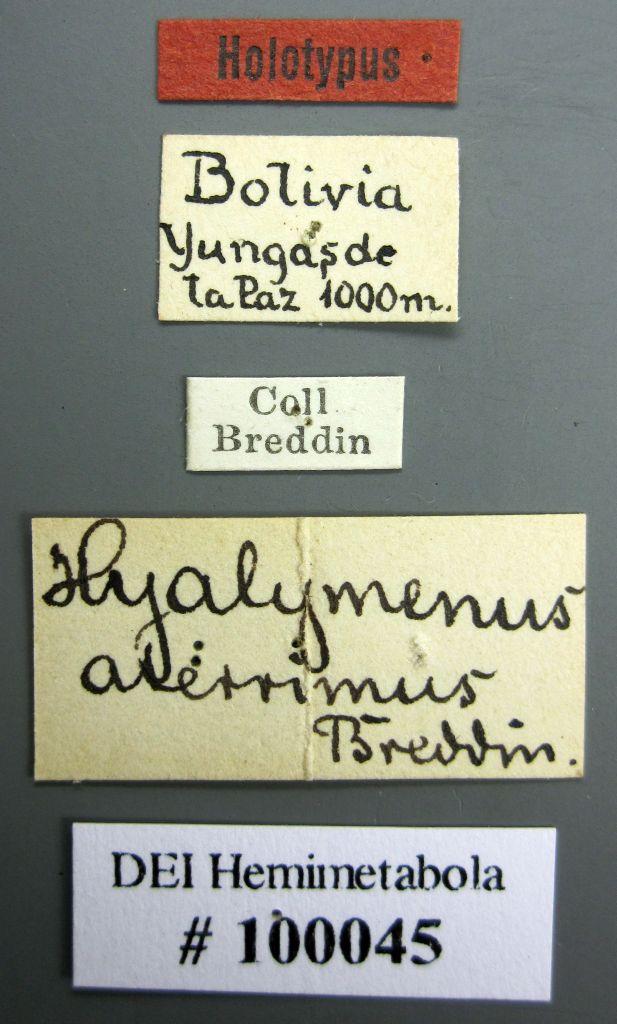 Holotypus
Bolivia
Yungas de
la Paz 1000m.
Coll
Breddin
Hyalymenus
aterrimus
Breddin.
DEI Hemimetabola
# 100045